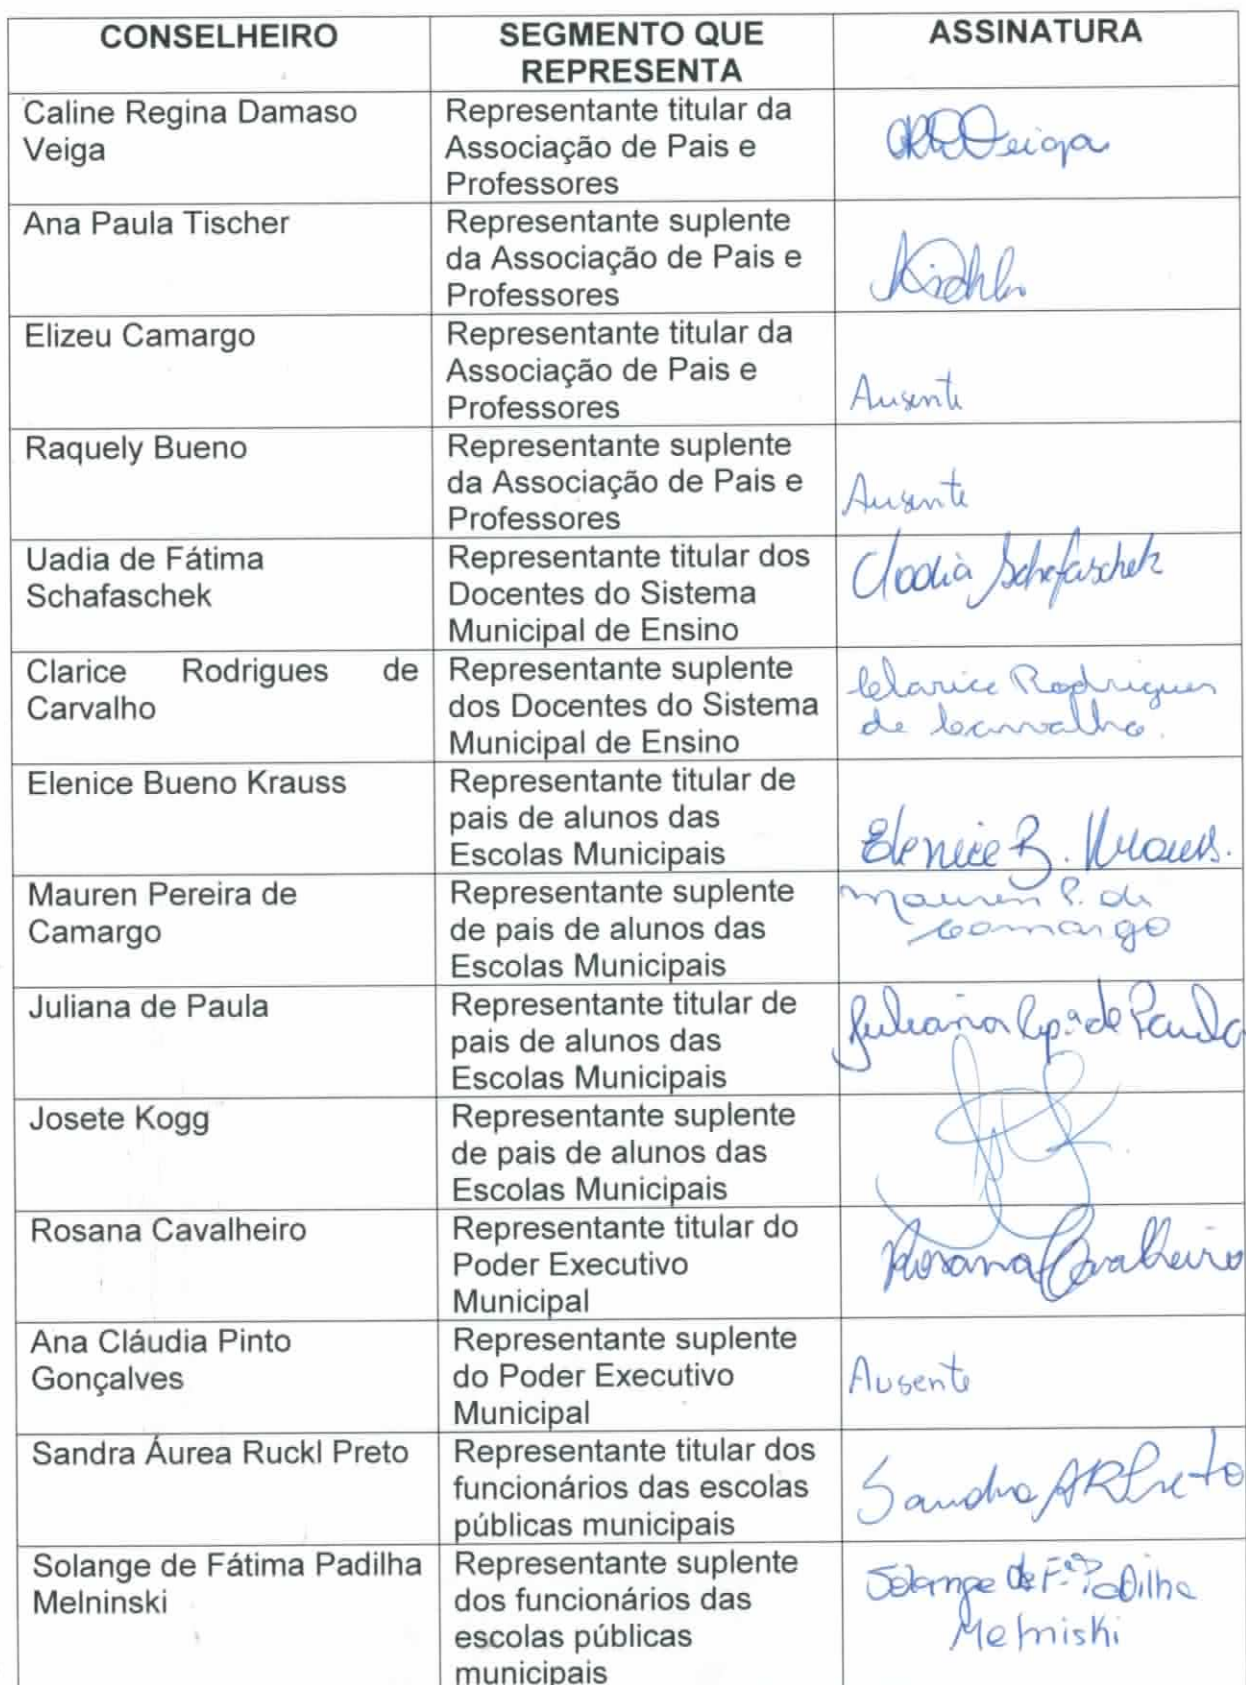 CONSELHEIRO
SEGMENTO QUE
REPRESENTA
ASSINATURA
Caline Regina Damaso
Veiga
Representante titular da
Associação de Pais e
Professores
Ana Paula Tischer
Representante suplente
da Associação de Pais e
Professores
Elizeu Camargo
Representante titular da
Associação de Pais e
Professores
Ausente
Raquely Bueno
Representante suplente
da Associação de Pais e
Professores
Ausente
Uadia de Fátima
Schafaschek
Representante titular dos
Docentes do Sistema
Municipal de Ensino
Schafaschek
Clarice Rodrigues de
Carvalho
Representante suplente
dos Docentes do Sistema
Municipal de Ensino
Clarice Rodrigues
de Carvalho.
Elenice Bueno Krauss
Representante titular de
pais de alunos das
Escolas Municipais
Elenice B. Krauss.
Mauren Pereira de
Camargo
Representante suplente
de pais de alunos das
Escolas Municipais
Mauren P. de
Camargo
Juliana de Paula
Representante titular de
pais de alunos das
Escolas Municipais
Juliana Ap.ª de Paula
Josete Kogg
Representante suplente
de pais de alunos das
Escolas Municipais
Rosana Cavalheiro
Representante titular do
Poder Executivo
Municipal
Rosana Cavalheiro
Ana Cláudia Pinto
Gonçalves
Representante suplente
do Poder Executivo
Municipal
Ausente
Sandra Áurea Ruckl Preto
Representante titular dos
funcionários das escolas
públicas municipais
Sandra ARPreto
Solange de Fátima Padilha
Melninski
Representante suplente
dos funcionários das
escolas públicas
municipais
Solange de F.ª Padilha
Melniski